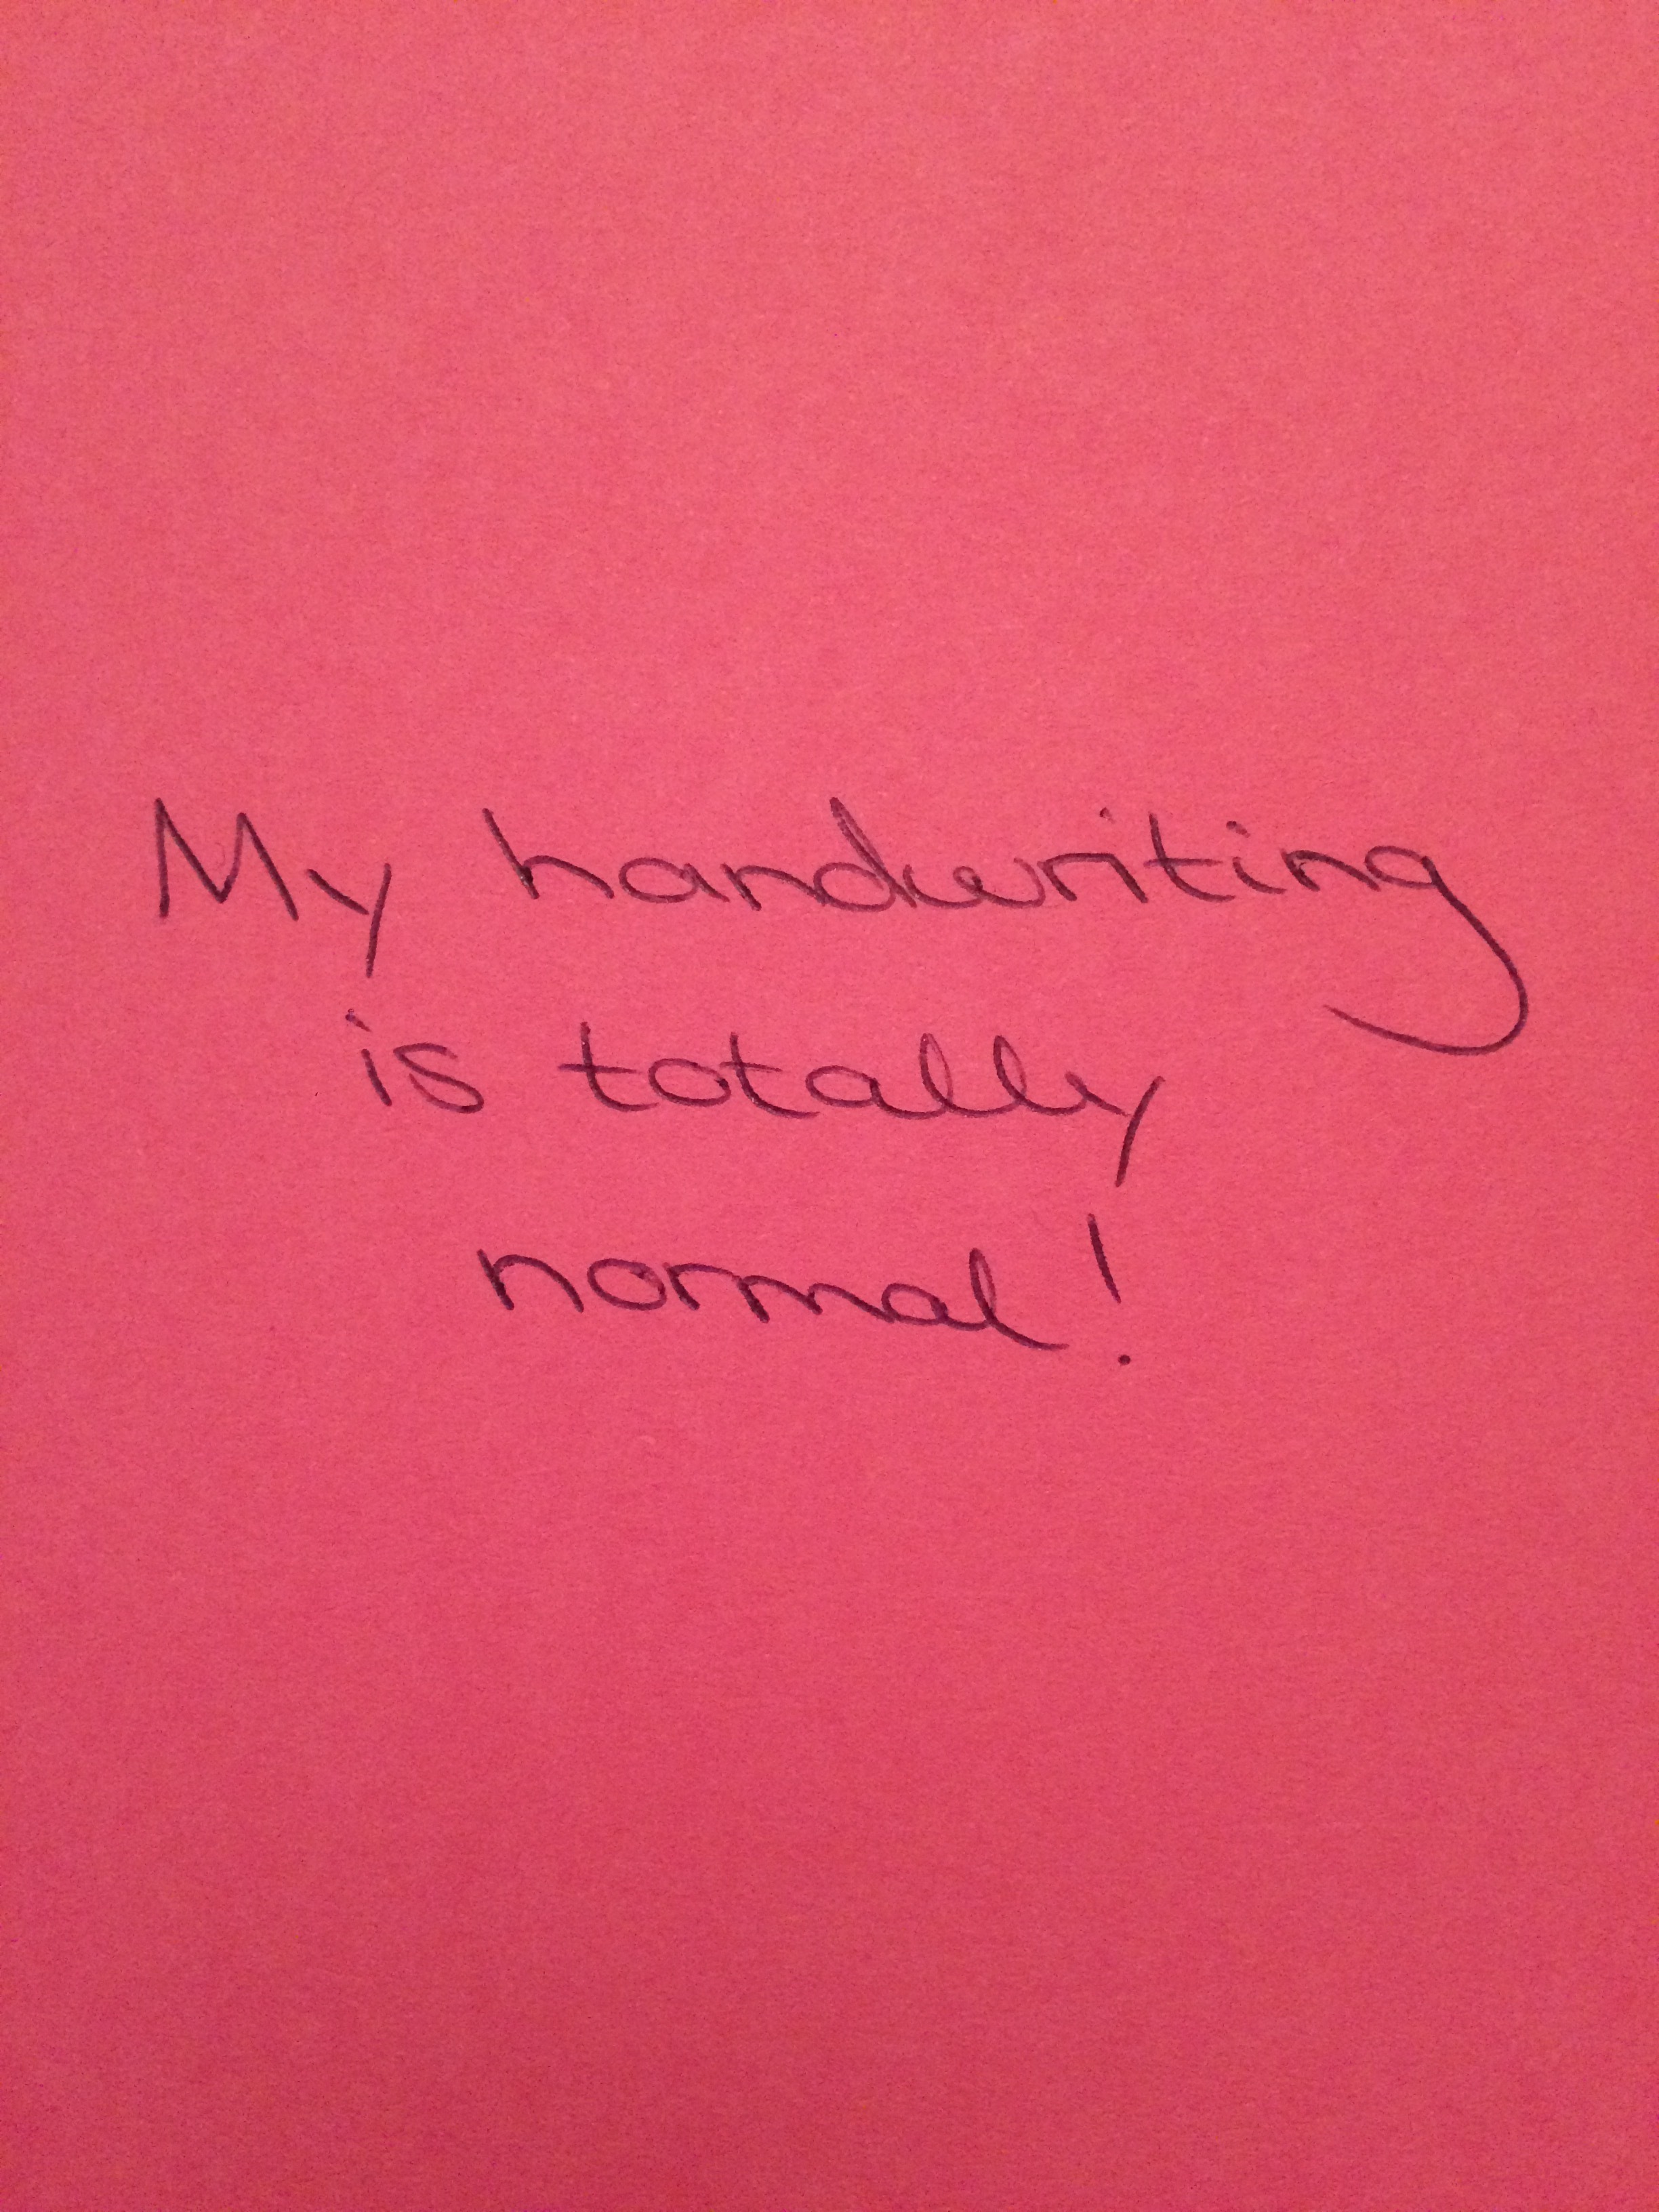 My handwriting
is totally
normal!